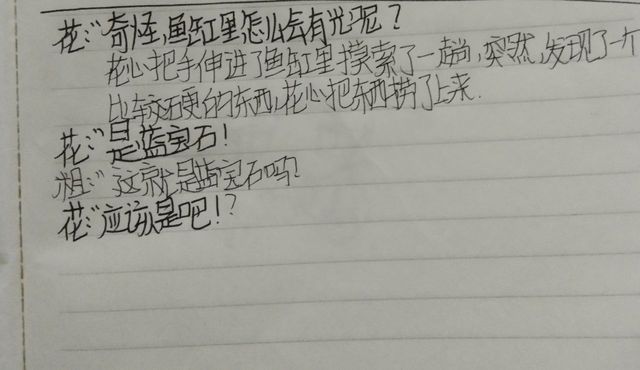 花:“奇怪,鱼缸里怎么会有光呢?
花心把手伸进了鱼缸里摸索了一趟,突然,发现了一个
比较硬的东西,花心把东西捞了上来.
花:“是蓝宝石!
粗:“这就是蓝宝石吗?
花:“应该是吧!?